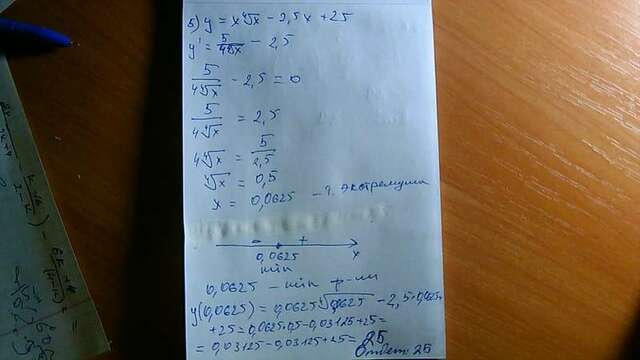 5) y = x∜x − 2,5x + 25
y' = 5/(4∜x) − 2,5
5/(4∜x) − 2,5 = 0
5/(4∜x) = 2,5
4∜x = 5/2,5
∜x = 0,5
x = 0,0625 – т. экстремума
− +
0,0625 x
min
0,0625 – min ф-ии
y(0,0625) = 0,0625∜0,0625 − 2,5·0,0625+
+25 = 0,0625·0,5 − 0,03125 + 25 =
= 0,03125 − 0,03125 + 25 = 25
Ответ: 25